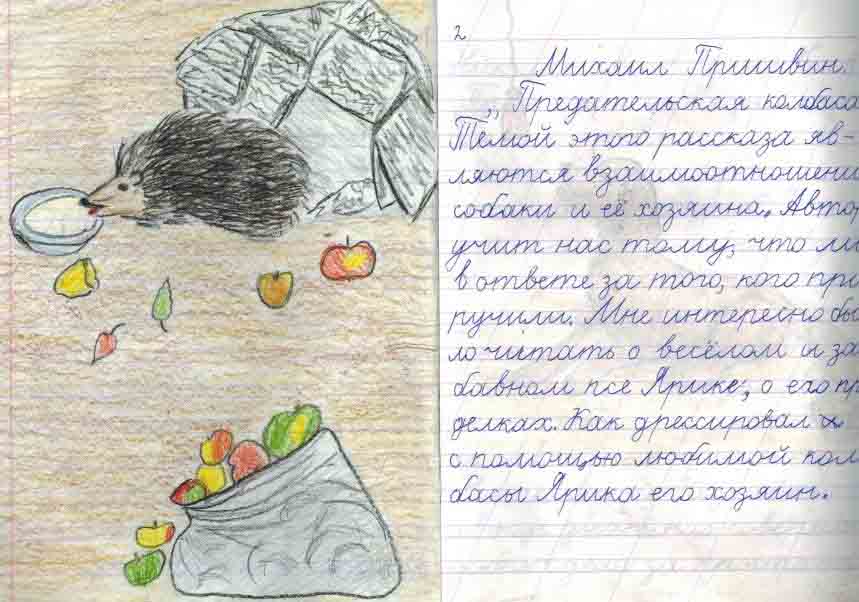 2
Михаил Пришвин.
„Предательская колбаса
Темой этого рассказа яв-
ляются взаимоотношени
собаки и её хозяина. Автор
учит нас тому, что
в ответе за того, кого при
ручили. Мне интересно бы
ло читать о весёлом и за
бавном псе Ярике, о ехо пр
делках. Как дрессировал
с помощью любимой кол
басы Ярика его хозяин.